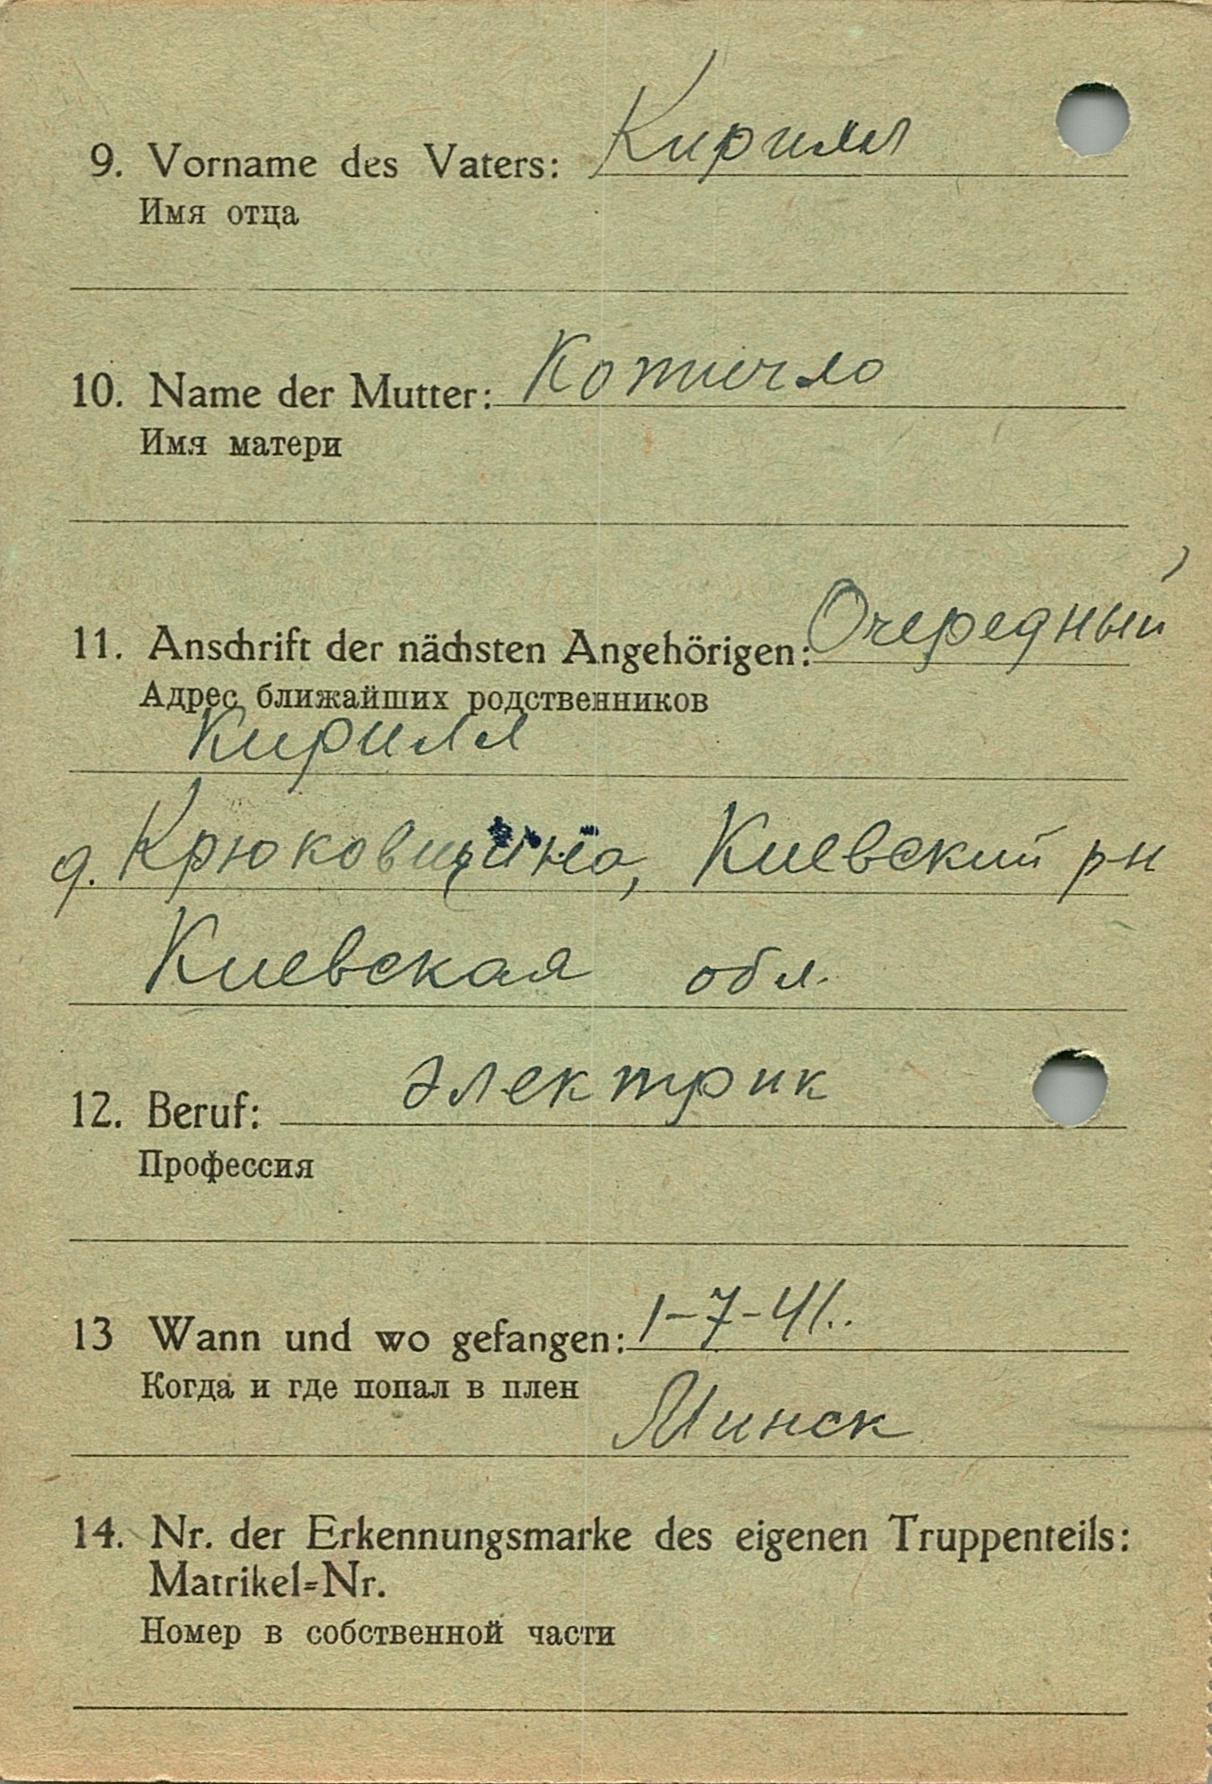 9. Vorname des Vaters: Кирилл
Имя отца
10. Name der Mutter: Котичло
Имя матери
11. Anschrift der nächsten Angehörigen: Очередный
Адрес ближайших родственников
Кирилл
д. Крюковщина, Киевский рн
Киевская обл.
12. Beruf: электрик
Профессия
13 Wann und wo gefangen: 1-7-41..
Когда и где попал в плен
Минск
14. Nr. der Erkennungsmarke des eigenen Truppenteils:
Matrikel=Nr.
Номер в собственной части